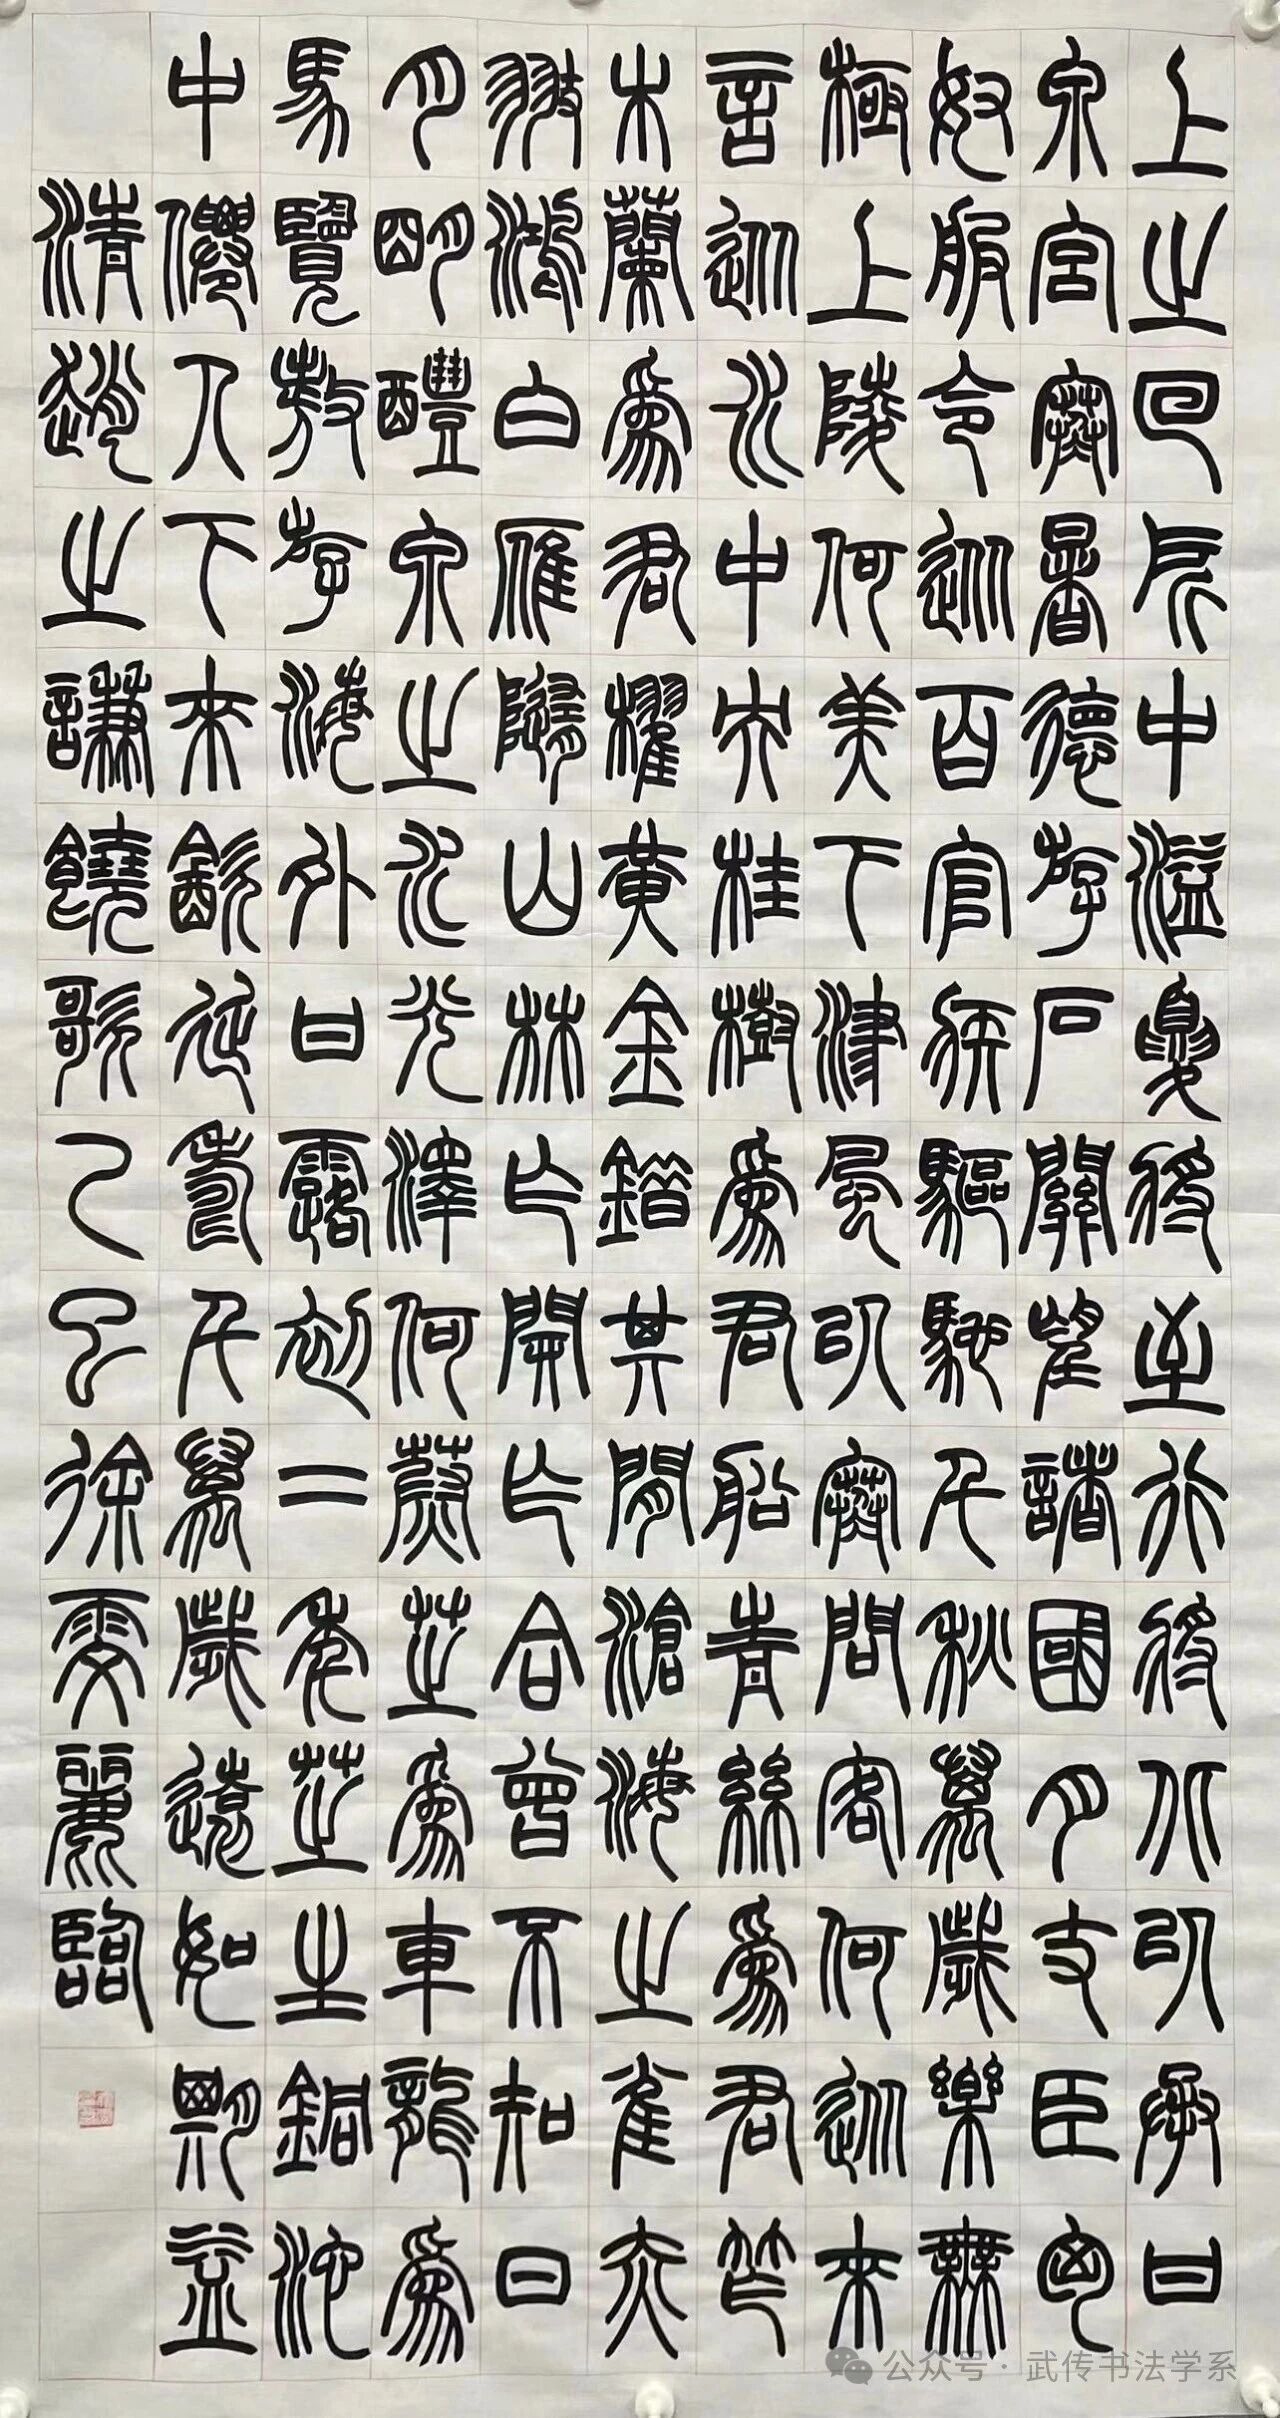 上之回所中溢夏將至行將北以承甘
泉宮寒暑德游石關望諸國月支臣匈
奴服令從百官疾驅馳千秋萬歲樂無
極上陵何美下津風以寒問客何從來
言從水中央桂樹為君船青絲為君笮
木蘭為君櫂黃金錯其間滄海之雀赤
翅鴻白雁隨山林乍開乍合曾不知日
月明醴泉之水光澤何蔚芝為車龍為
馬覽敖游海外甘露初二年芝生銅池
中僊人下來飲延壽千萬歲遠如期益
清趙之謙鐃歌乙巳徐雯麗臨
公众号·武传书法学系